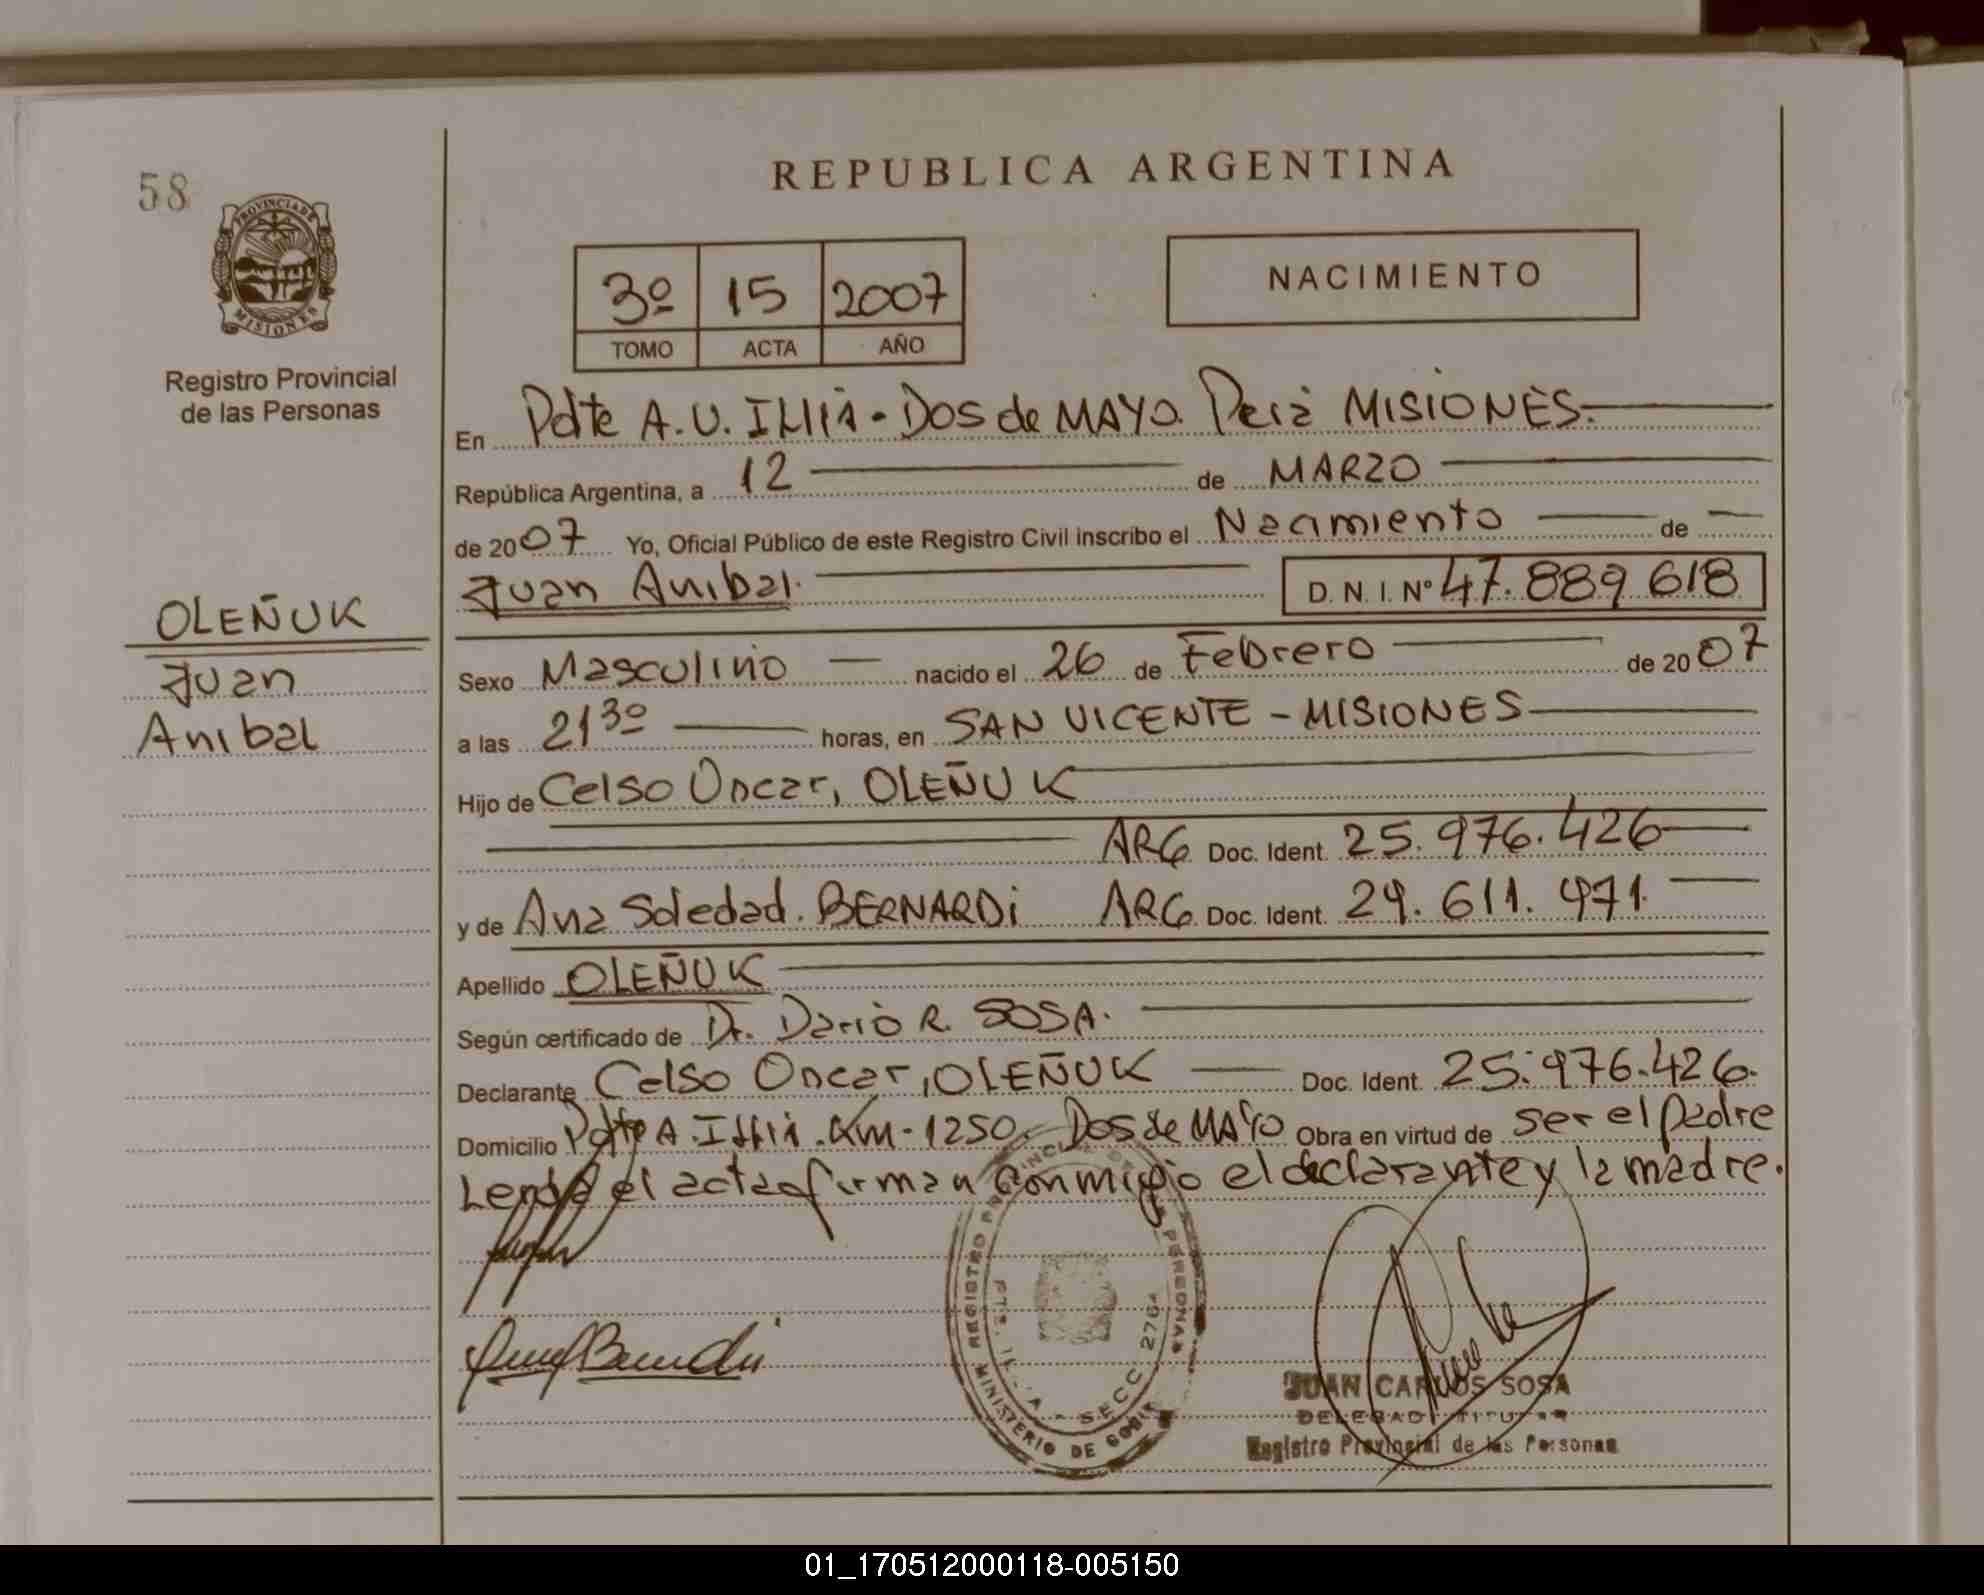 REPUBLICA ARGENTINA
58
PROVINCIA DE
MISIONES
Registro Provincial
de las Personas
3º 15 2007
TOMO ACTA AÑO
NACIMIENTO
En Pdte A.U. Illia - Dos de MAYO. Pcia MISIONES.
República Argentina, a 12 de MARZO
de 2007 Yo, Oficial Público de este Registro Civil inscribo el Nacimiento de
Juan Anibal. D. N. I. Nº 47.889.618
OLEÑUK
Juan
Anibal
Sexo Masculino nacido el 26 de Febrero de 2007
a las 21 30 horas, en SAN VICENTE - MISIONES
Hijo de Celso Oscar, OLEÑUK
ARG Doc. Ident. 25.976.426
y de Ana Soledad. BERNARDi ARG. Doc. Ident. 29.611.971.
Apellido OLEÑUK
Según certificado de Dr. Dario R. SOSA.
Declarante Celso Oscar, OLEÑUK Doc. Ident. 25.976.426.
Domicilio Pdte A. Illia. Km-1250. Dos de MAYO Obra en virtud de ser el padre
Leida el acta firman conmigo el declarante y la madre.
REGISTRO PROVINCIAL DE LAS PERSONAS
MINISTERIO DE
SECC 2764
JUAN CARLOS SOSA
DELEGADO TITULAR
Registro Provincial de las Personas
01_170512000118-005150